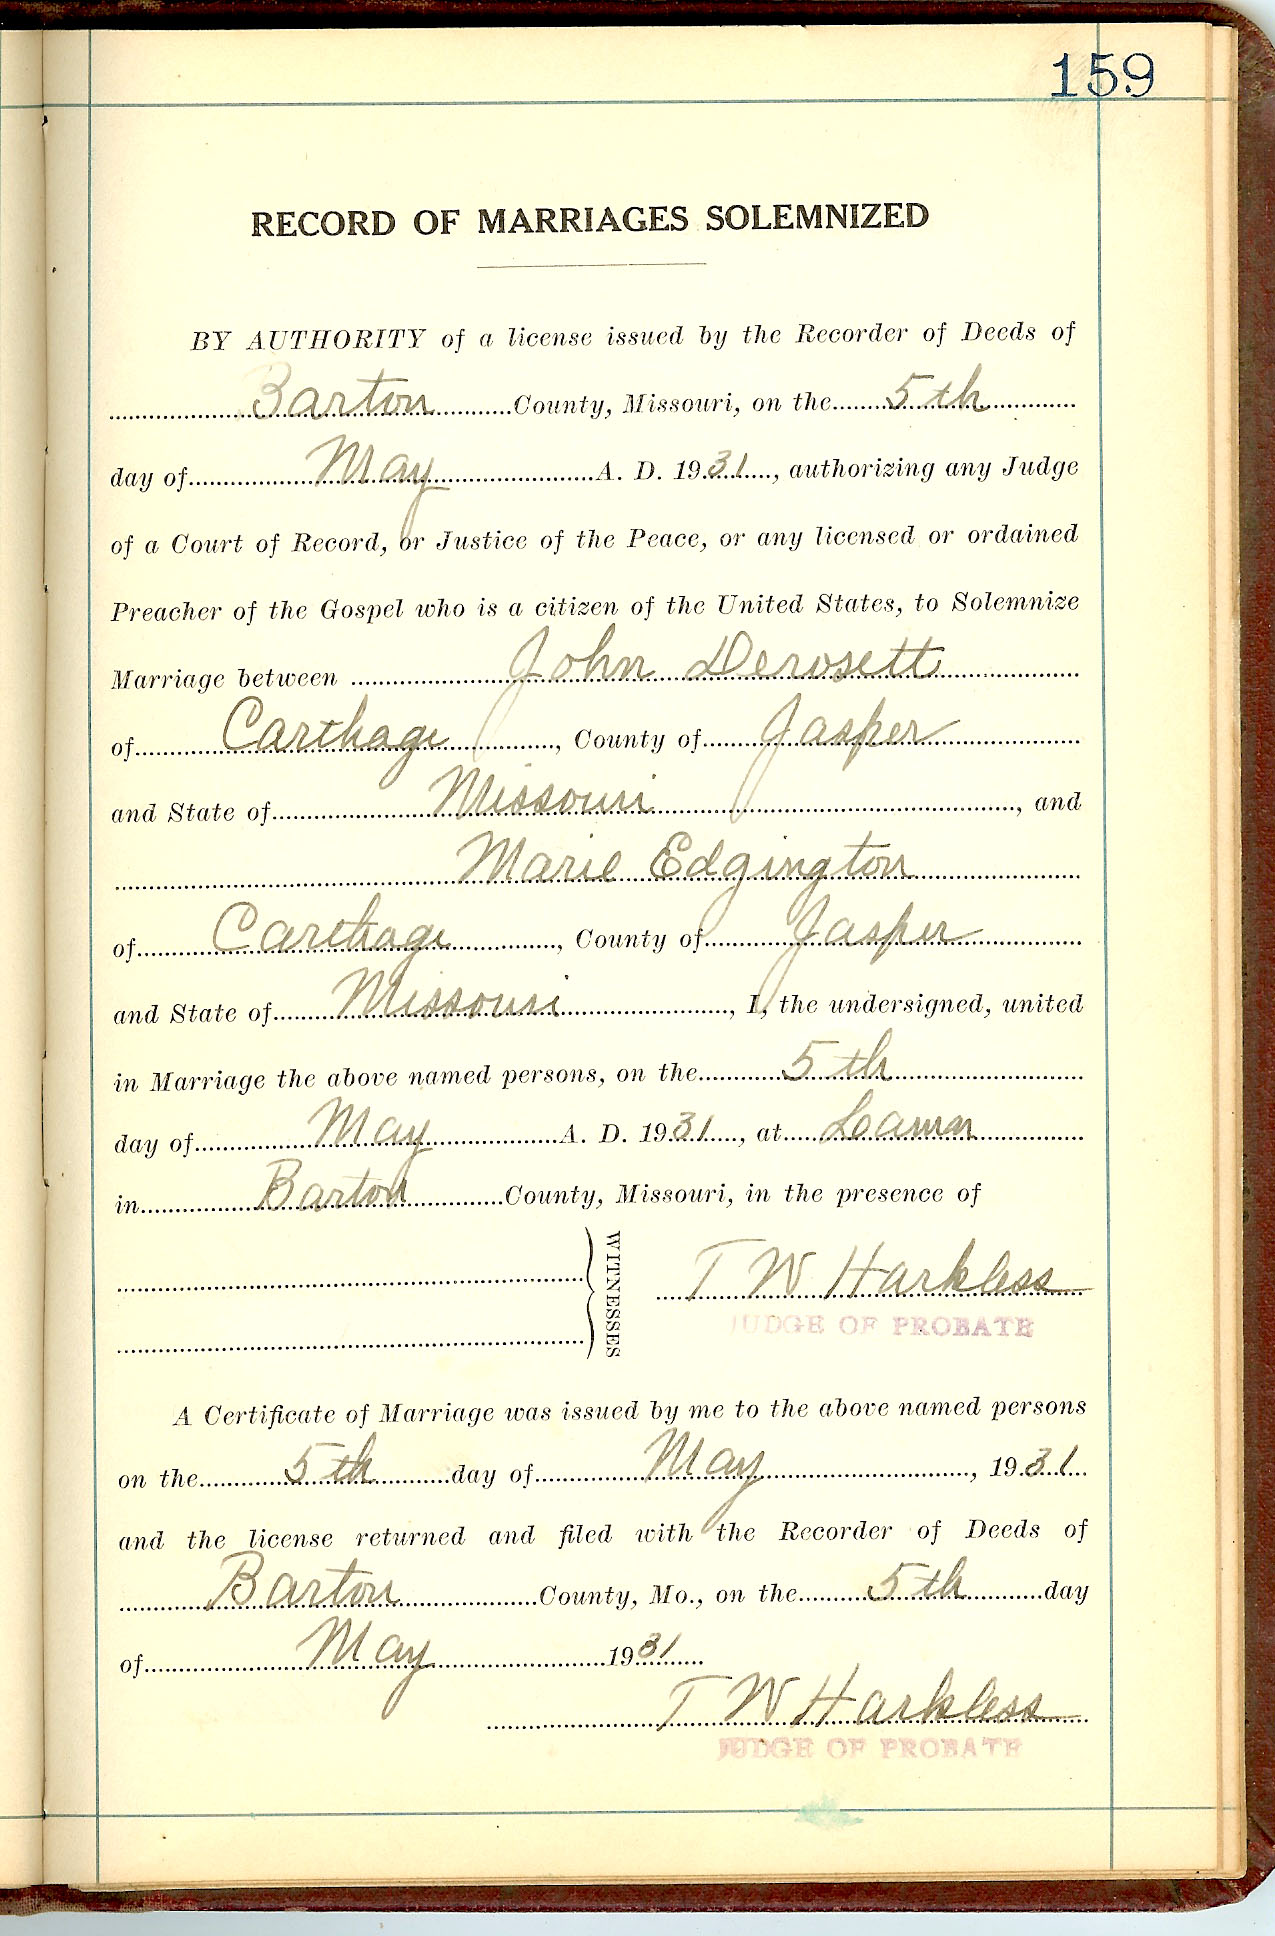 159
RECORD OF MARRIAGES SOLEMNIZED
BY AUTHORITY of a license issued by the Recorder of Deeds of
Barton County, Missouri, on the 5th
day of May A. D. 1931, authorizing any Judge
of a Court of Record, or Justice of the Peace, or any licensed or ordained
Preacher of the Gospel who is a citizen of the United States, to Solemnize
Marriage between John Derosett
of Carthage, County of Jasper
and State of Missouri, and
Marie Edgington
of Carthage, County of Jasper
and State of Missouri, I, the undersigned, united
in Marriage the above named persons, on the 5th
day of May A. D. 1931, at Lamar
in Barton County, Missouri, in the presence of
WITNESSES
T W Harkless
JUDGE OF PROBATE
A Certificate of Marriage was issued by me to the above named persons
on the 5th day of May, 1931
and the license returned and filed with the Recorder of Deeds of
Barton County, Mo., on the 5th day
of May 1931
T W Harkless
JUDGE OF PROBATE